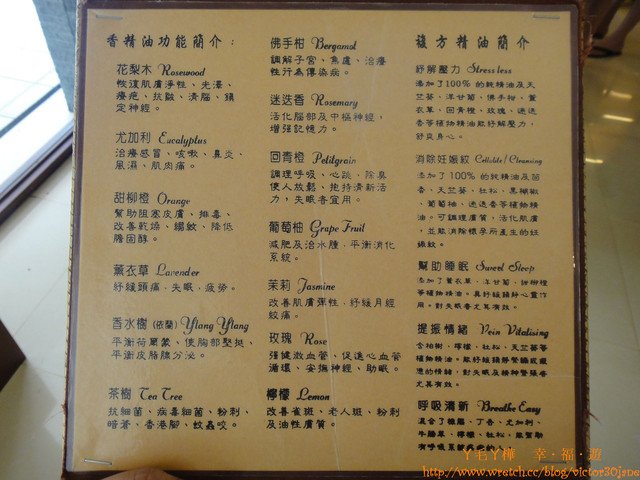 香精油功能簡介：
花梨木 Rosewood
恢復肌膚淨性、光澤、
療疤、抗皺、清腦、鎮
定神經。
尤加利 Eucalyptus
治療感冒、咳嗽、鼻炎、
風濕、肌肉痛。
甜柳橙 Orange
幫助阻塞皮膚、排毒、
改善乾燥、皺紋、降低
膽固醇。
薰衣草 Lavender
紓緩頭痛，失眠，疲勞。
香水樹 (依蘭) Ylang Ylang
平衡荷爾蒙、使胸部堅挺、
平衡皮脂腺分泌。
茶樹 Tea Tree
抗細菌、病毒細菌、粉刺、
暗蒼、香港腳、蚊蟲咬。
佛手柑 Bergamot
調解子宮、焦慮、治療
性行為傳染病。
迷迭香 Rosemary
活化腦部及中樞神經，
增强記憶力。
回青橙 Petitgrain
調理呼吸、心跳、除臭
使人放鬆、抱持清新活
力，失眠者宜用。
葡萄柚 Grape Fruit
減肥及治水腫，平衡消化
系統。
茉莉 Jasmine
改善肌膚彈性，紓緩月經
絞痛。
玫瑰 Rose
強健微血管、促進心血管
循環、安撫神經、助眠。
檸檬 Lemon
改善雀斑、老人斑、粉刺
及油性膚質。
複方精油簡介
紓解壓力 Stress less
添加了100% 的純精油及天
竺葵、洋甘菊、佛手柑、薰
衣草、回青橙、玫瑰、迷迭
香等植物精油能紓解壓力，
舒爽身心。
消除妊娠紋 Cellulite / Cleansing
添加了 100% 的純精油及茴
香、天竺葵、杜松、黑椒椒
、葡萄柚、迷迭香等植物精
油。可調理膚質，活化肌膚
，並能消除懷孕所產生的妊
娠紋。
幫助睡眠 Sweet Sleep
添加了薰衣草、洋甘菊，甜柳橙
等植物精油。具紓緩鎮靜心靈作
用。對失眠者尤其有效。
提振情緒 Vein Vitalising
含柏樹、檸檬、杜松、天竺葵等
植物精油。能紓緩靜
道的情緒，對失眠及精神緊張者
尤其有效。
呼吸清新 Breathe Easy
混合了樟腦、丁香、尤加利、
牛膝草、檸檬、杜松、能幫助
有呼吸系統
ㄚ毛ㄚ樺 幸‧福‧遊
http://www.wretch.cc/blog/victor30jane